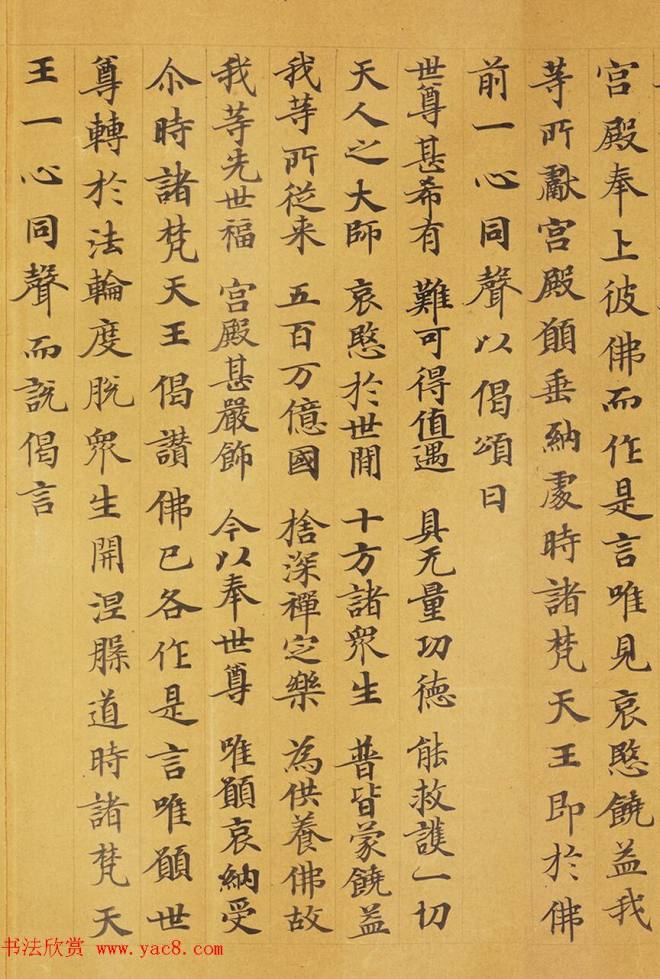 宫殿奉上彼佛而作是言唯見哀愍饒益我
等所獻宫殿願垂納處時諸梵天王即於佛
前一心同聲以偈頌曰
世尊甚希有 難可得值遇 具无量功德 能救護一切
天人之大師 哀愍於世間 十方諸衆生 普皆蒙饒益
我等所従来 五百万億國 捨深禪定樂 為供養佛故
我等先世福 宫殿甚嚴飾 今以奉世尊 唯願哀納受
尒時諸梵天王偈讃佛已各作是言唯願世
尊轉於法輪度脱衆生開涅槃道時諸梵天
王一心同聲而說偈言
书法欣赏 www.yac8.com